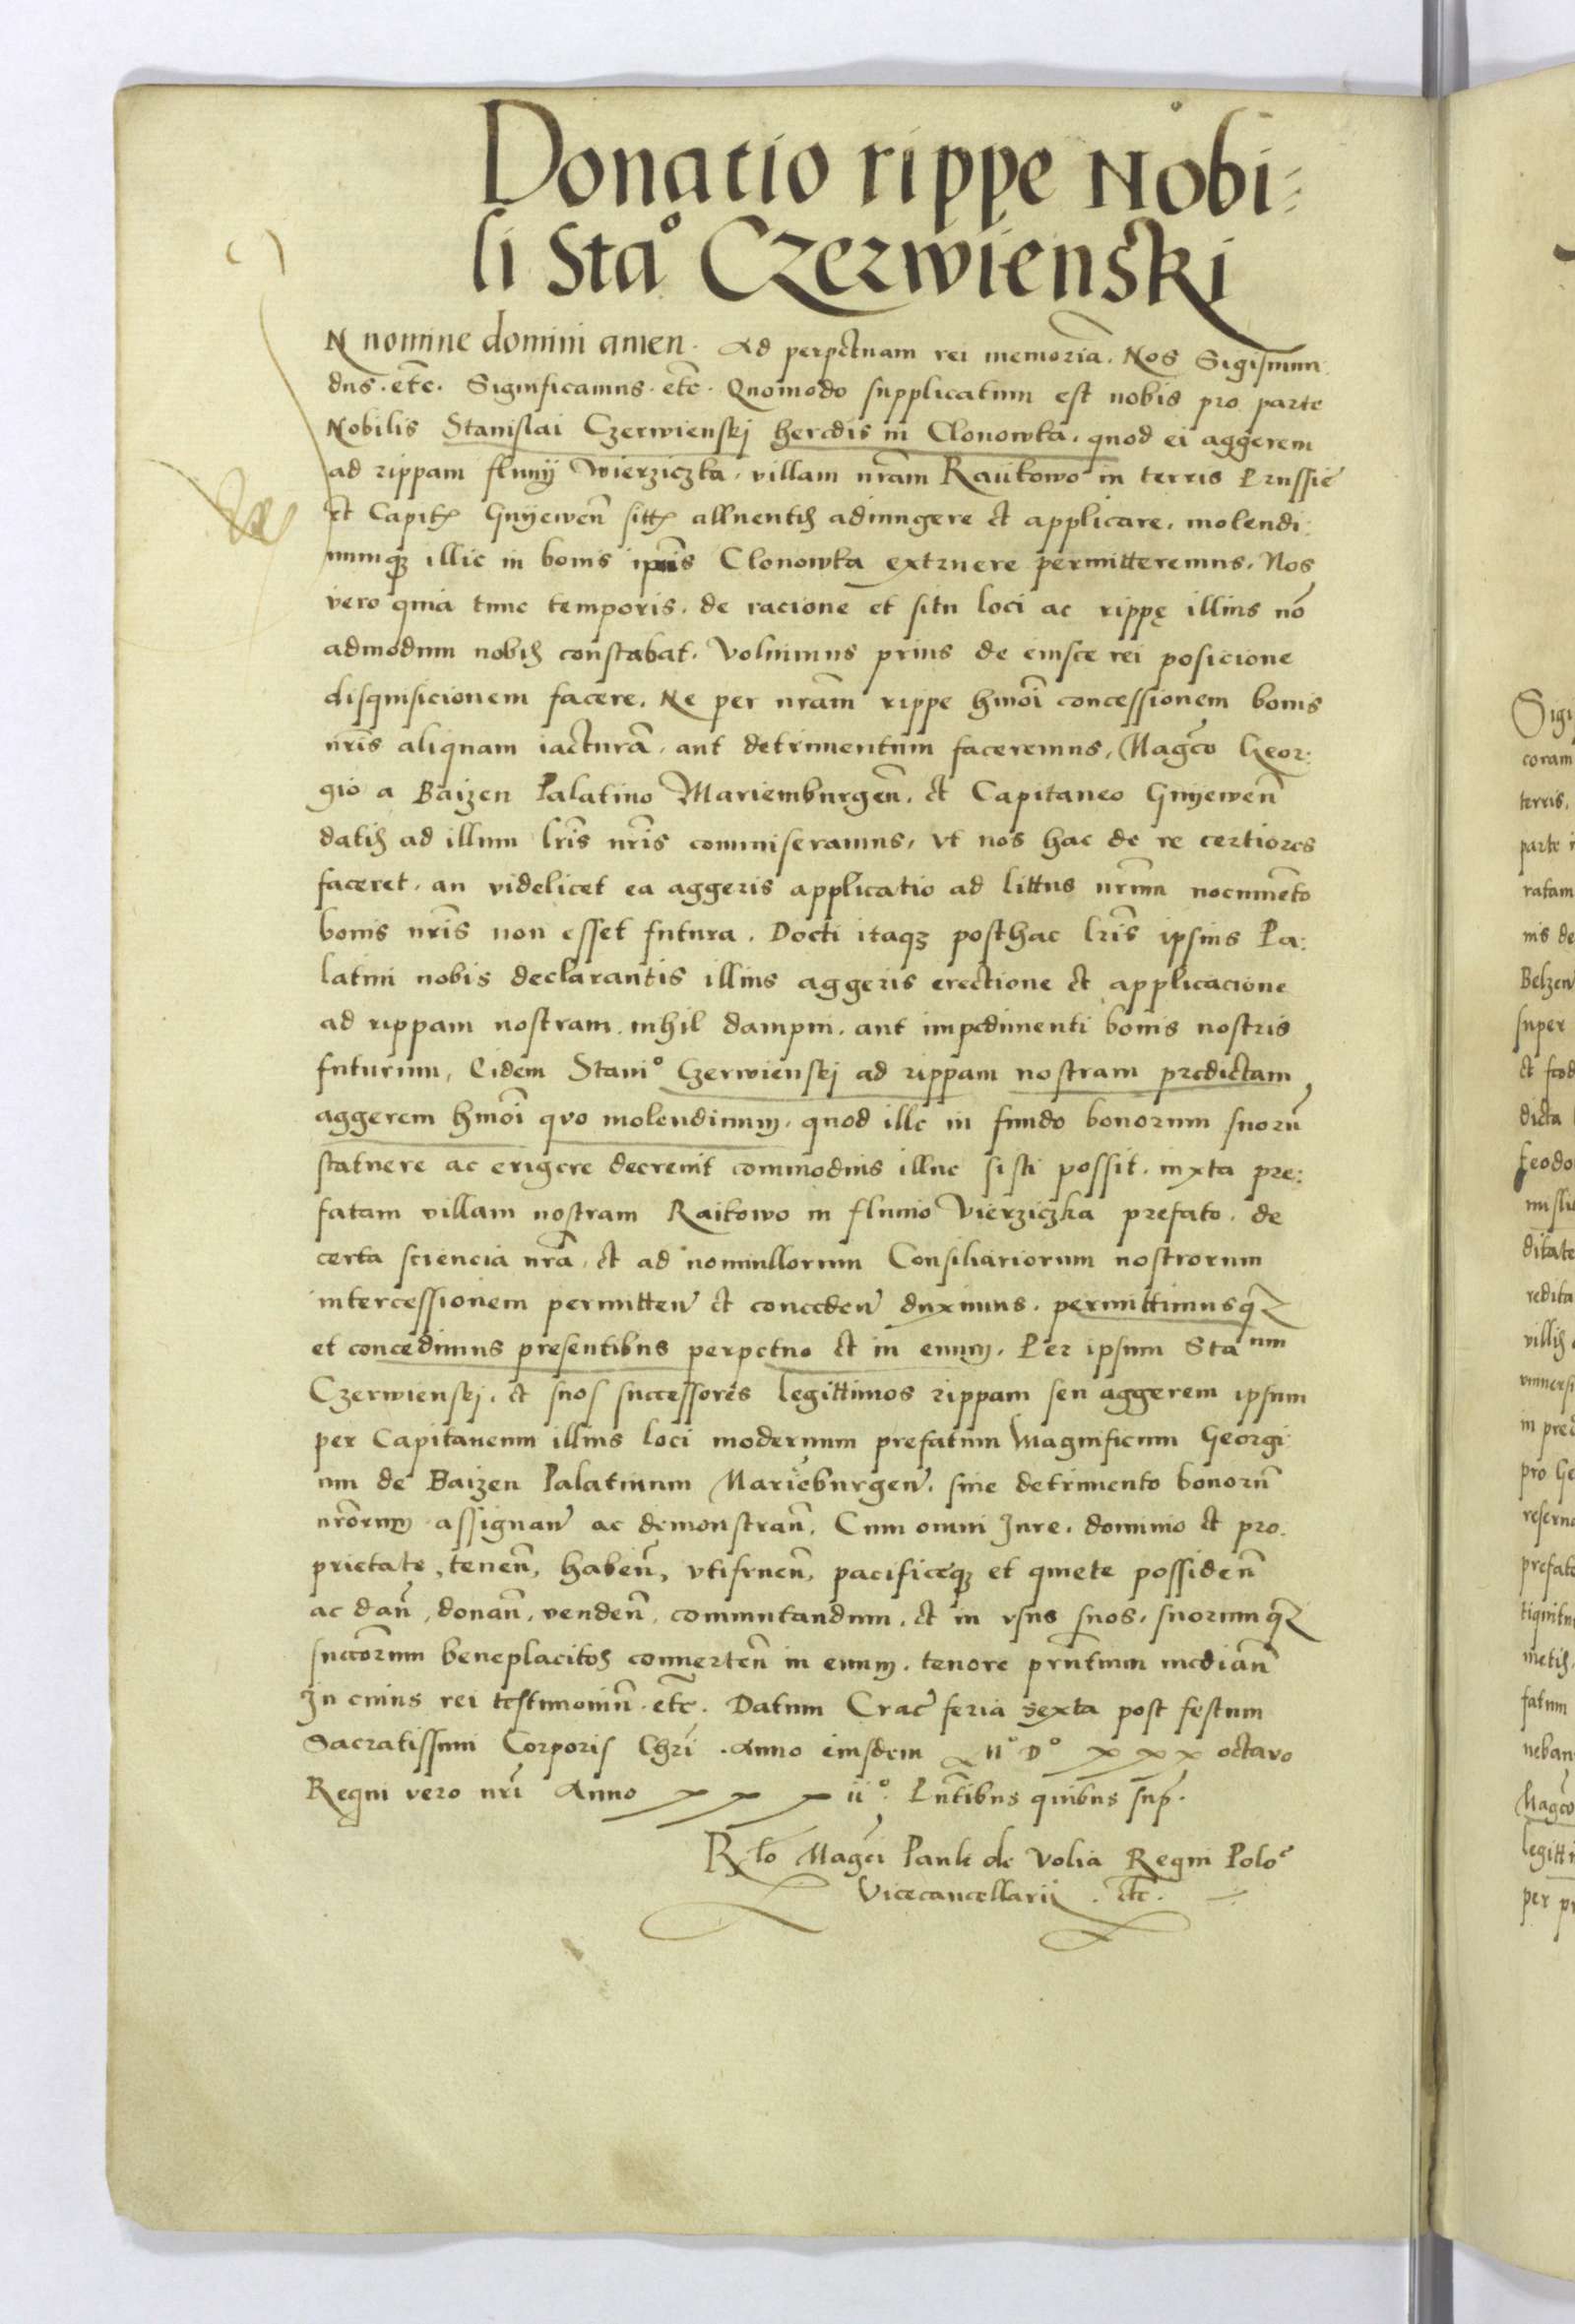 Donatio rippe Nobi-
li Sta° Czerwienski
N nomine domini amen. Ad perpetuam rei memoriā. Nos Sigismun
dus. etc̄. Significamus. etc̄. Quomodo supplicatum est nobis pro parte
Nobilis Stanislai Czerwienskj heredis in Clonowka, quod ei aggerem
ad rippam fluuij Wierziczka, villam nr̄am Raikowo in terris Prussie
et Capit Gnyewen̄ sitt alluentis adiungere et applicare, molendi:
numq illic in bonis ip̄ius Clonowka extruere permitteremus, Nos
vero quia tunc temporis, de racione et situ loci ac rippę illius nō
admodum nobis constabat, Voluimus prius de eiusce rei posicione
disquisicionem facere, Ne per nr̄am rippe hmōi concessionem bonis
nr̄is aliquam iacturā, aut detrimentum faceremus, Magco Geor:
gio a Baizen Palatino Mariemburgen̄, et Capitaneo Gnyewen̄
datis ad illum lr̄is nr̄is commiseramus, vt nos hac de re certiores
faceret, an videlicet ea aggeris applicatio ad littus nr̄um nocumēto
bonis nr̄is non esset futura. Docti itaqȝ posthac lr̄is ipsius Pa:
latini nobis declarantis illius aggeris erectione et applicacione
ad rippam nostram nihil dampni, aut impedimenti bonis nostris
futurum, Eidem Stani° Czerwienskj ad rippam nostram predictam
aggerem hmōi quo molendinum, quod illic in fundo bonorum suorū
statuere ac erigere decreuit commodius illuc sisti possit, iuxta pre:
fatam villam nostram Raikowo in fluuio Vierziczka prefato, de
certa sciencia nr̄a, et ad nonnullorum Consiliariorum nostrorum
intercessionem permitten̄ et conceden̄ duximus, permittimusqȝ
et concedimus presentibus perpetuo et in euum, Per ipsum Staum
Czerwienskj, et suos successores legittimos rippam seu aggerem ipsum
per Capitaneum illius loci modernum prefatum Magnificum Georgi
um de Baizen Palatinum Mariēburgen̄, sine detrimento bonorū
nr̄orum assignan̄ ac demonstran̄, Cum omni Jure, dominio et pro
prietate, tenen̄, haben̄, vtifruen̄, pacificeqȝ et quiete possiden̄
ac dan̄, donan̄, venden̄, commutandum, et in vsus suos, suorumqȝ
succōrum beneplacitos conuerten̄ in euum, tenore prn̄tium median̄
In cuius rei testimoniū. etc̄. Datum Crac̄ feria sexta post festum
Sacratissimi Corporis Chr̄i. Anno eiusdem M° D° xxx octavo
Regni vero nr̄i Anno xxxii°. Pn̄tibus quibus sup̄.
Rlo Magci Pauli de Volia Regni Polo
Vicecancellarij. etc̄.